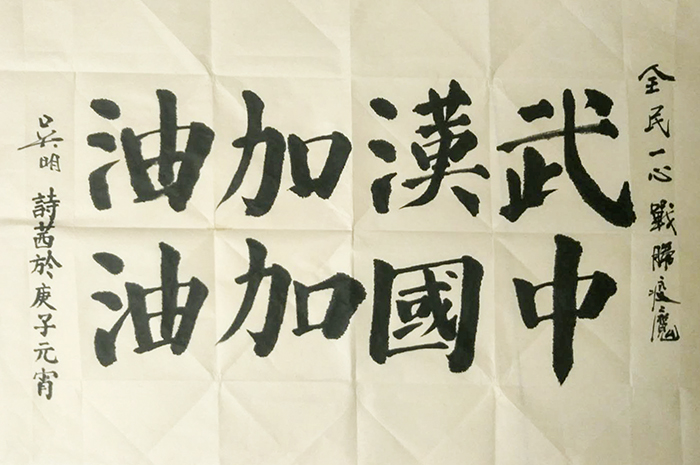 全民一心戰勝疫魔
武漢加油
中國加油
吳明詩茜於庚子元宵